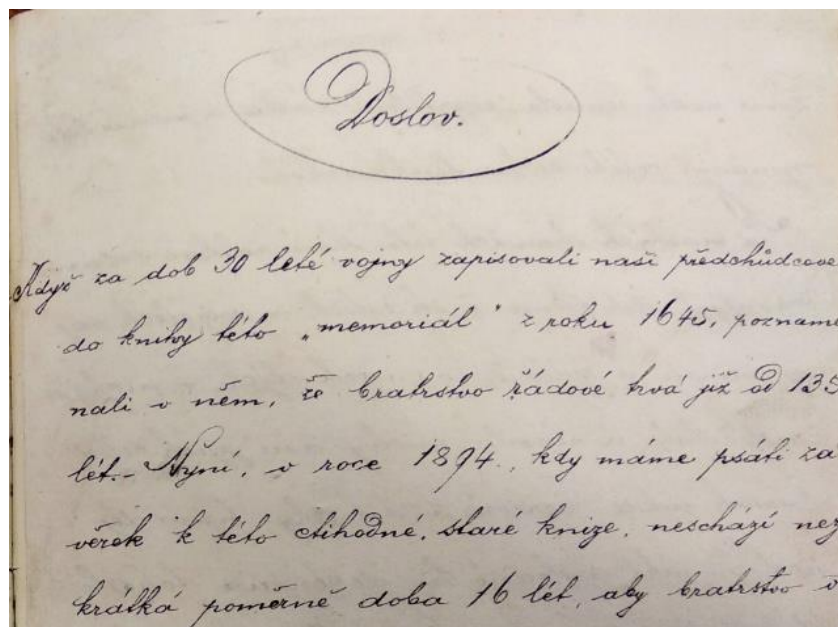 Doslov.
Když za dob 30 leté vojny zapisovali naši předchůdcové
do knihy této „memoriál" z roku 1645, pozname
nali v něm, že bratrstvo řádové trvá již od 135
lét.- Nyní, v roce 1894., kdy máme psáti za
věrek k této ctihodné, staré knize, neschází než
krátká poměrně doba 16 lét, aby bratrstvo v